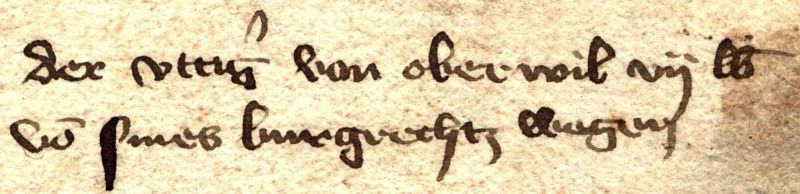 der vttiğ von oberwil vij lb
vō sines burgrechtz wegen